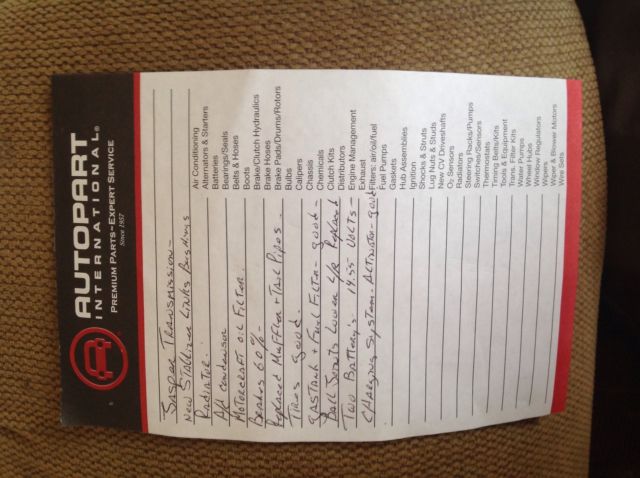 AUTOPART
INTERNATIONAL®
PREMIUM PARTS~EXPERT SERVICE
Since 1957
Jasper Transmission-
New Stabilizer Links Bushings
Radiator.
A/C condensor
Motorcraft oil Filter.
Brakes 60%-
Replaced Muffler + Tail Pipes
Tires good.
gastank + Fuel Filter- good-
Ball Joints Lower L/R Replaced
Two Battery's 14.55 Volts-
Charging System. Altinator- good
Air Conditioning
Alternators & Starters
Batteries
Bearings/Seals
Belts & Hoses
Boots
Brake/Clutch Hydraulics
Brake Hoses
Brake Pads/Drums/Rotors
Bulbs
Calipers
Chassis
Chemicals
Clutch Kits
Distributors
Engine Management
Exhaust
Filters: air/oil/fuel
Fuel Pumps
Gaskets
Hub Assemblies
Ignition
Shocks & Struts
Lug Nuts & Studs
New CV Driveshafts
O₂ Sensors
Radiators
Steering Racks/Pumps
Switches/Sensors
Thermostats
Timing Belts/Kits
Tools & Equipment
Trans. Filter Kits
Water Pumps
Wheel Hubs
Window Regulators
Wipers
Wiper & Blower Motors
Wire Sets